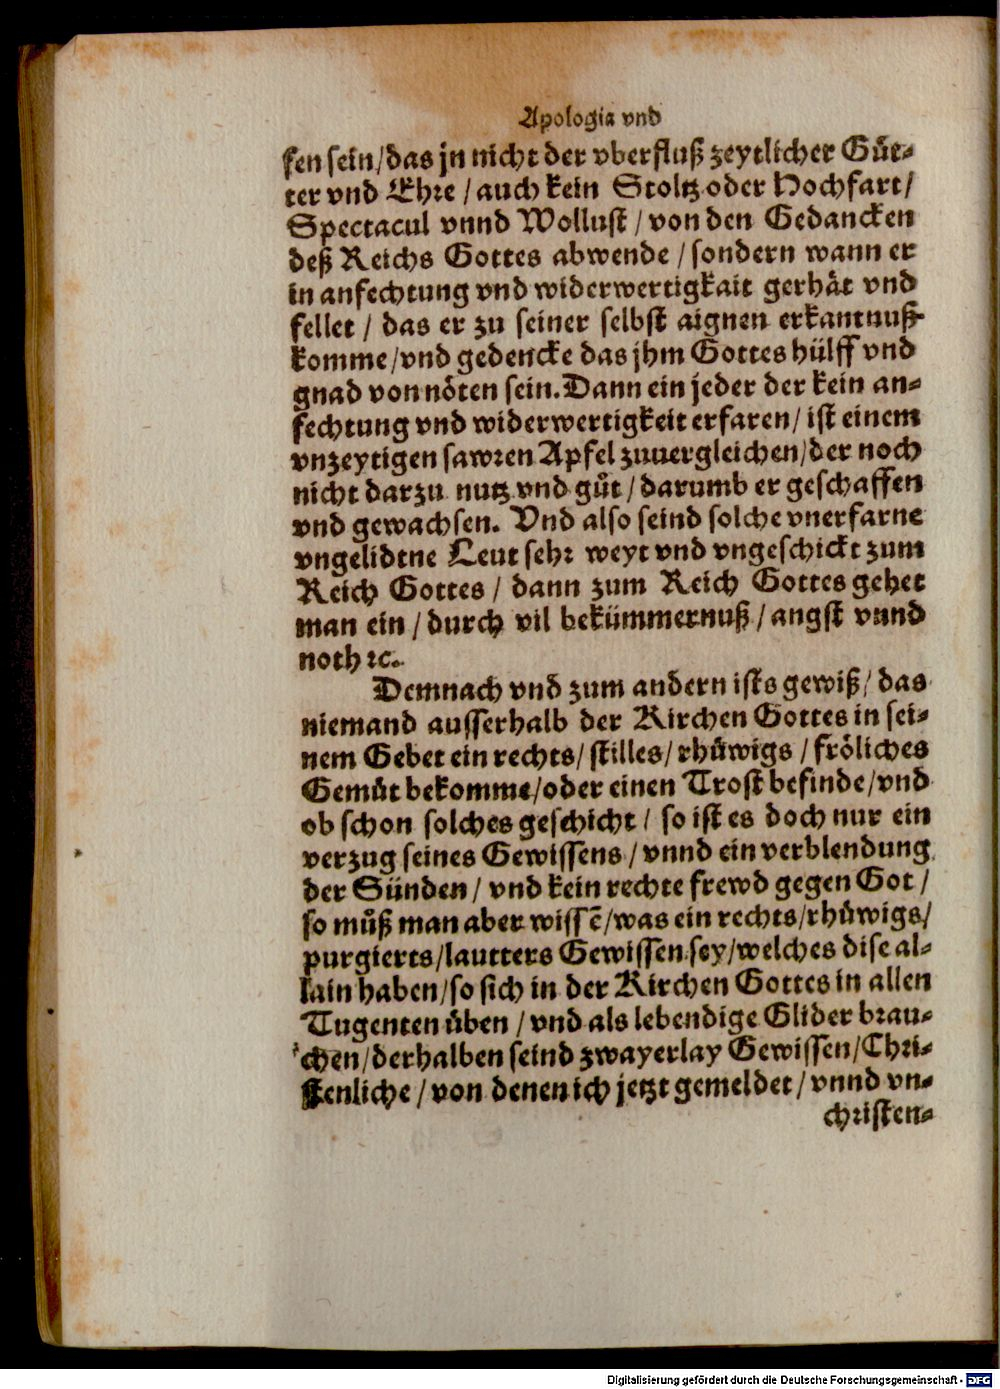 Apologia vnd
sen sein/das jn nicht der vberfluß zeytlicher Gůt-
ter vnd Ehre / auch kein Stoltz oder Hochfart/
Spectacul vnnd Wollust / von den Gedancken
deß Reichs Gottes abwende / sondern wann er
in anfechtung vnd widerwertigkait gerhät vnd
fellet / das er zu seiner selbst aignen erkantnuß
komme/vnd gedencke das jhm Gottes hülff vnd
gnad von nöten sein. Dann ein jeder der kein an-
fechtung vnd widerwertigkeit erfaren/ ist einem
vnzeytigen sawren Apfel zuuergleichen/der noch
nicht darzu nutz vnd gůt / darumb er geschaffen
vnd gewachsen. Vnd also seind solche vnerfarne
vngelidtne Leut sehr weyt vnd vngeschickt zum
Reich Gottes / dann zum Reich Gottes gehet
man ein / durch vil bekümmernuß / angst vnnd
noth ꝛc.
Demnach vnd zum andern ists gewiß/ das
niemand ausserhalb der Kirchen Gottes in sei-
nem Gebet ein rechts/ stilles/ rhůwigs / fröliches
Gemůt bekomme/oder einen Trost befinde/vnd
ob schon solches geschicht / so ist es doch nur ein
verzug seines Gewissens / vnnd ein verblendung
der Sünden / vnd kein rechte frewd gegen Got /
so můß man aber wissē/was ein rechts/rhůwigs/
purgierts/lautters Gewissen sey/welches dise al-
lain haben/so sich in der Kirchen Gottes in allen
Tugenten üben / vnd als lebendige Glider brau-
chen/derhalben seind zwayerlay Gewissen/Chri-
stenliche / von denen ich jetzt gemeldet / vnnd vn-
christen-
Digitalisierung gefördert durch die Deutsche Forschungsgemeinschaft - DFG